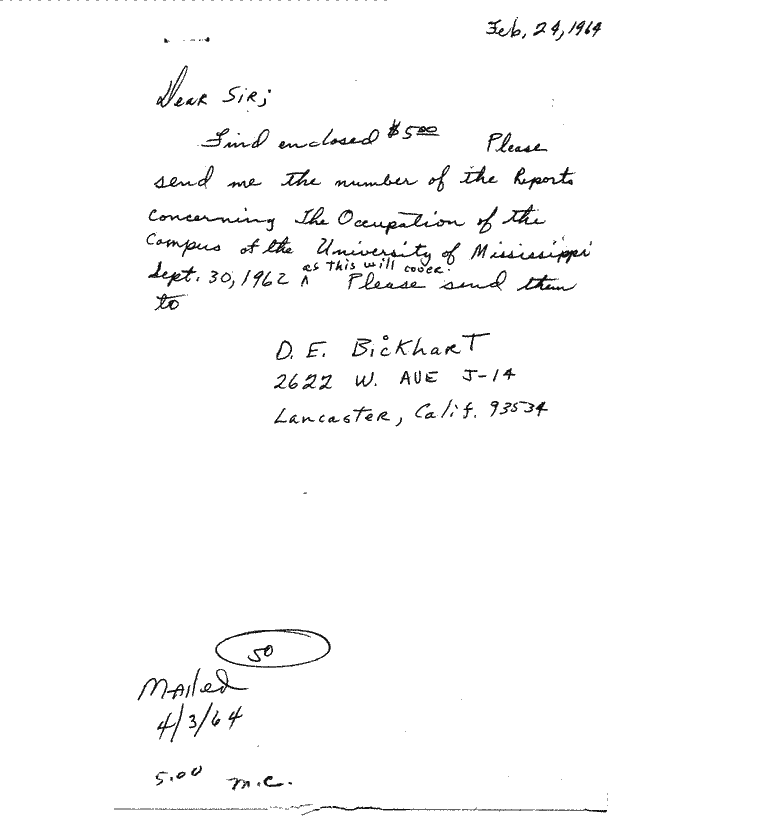 Feb, 24, 1964
Dear Sir;
Find enclosed $5.00 Please
send me the number of the Reports
concerning The Occupation of the
Campus of the University of Mississippi
as this will cover.
Sept. 30, 1962 ^ Please send them
to
D. E. Bickhart
2622 W. AVE J-14
Lancaster, Calif. 93534
50
Mailed
4/3/64
5.00 m.c.